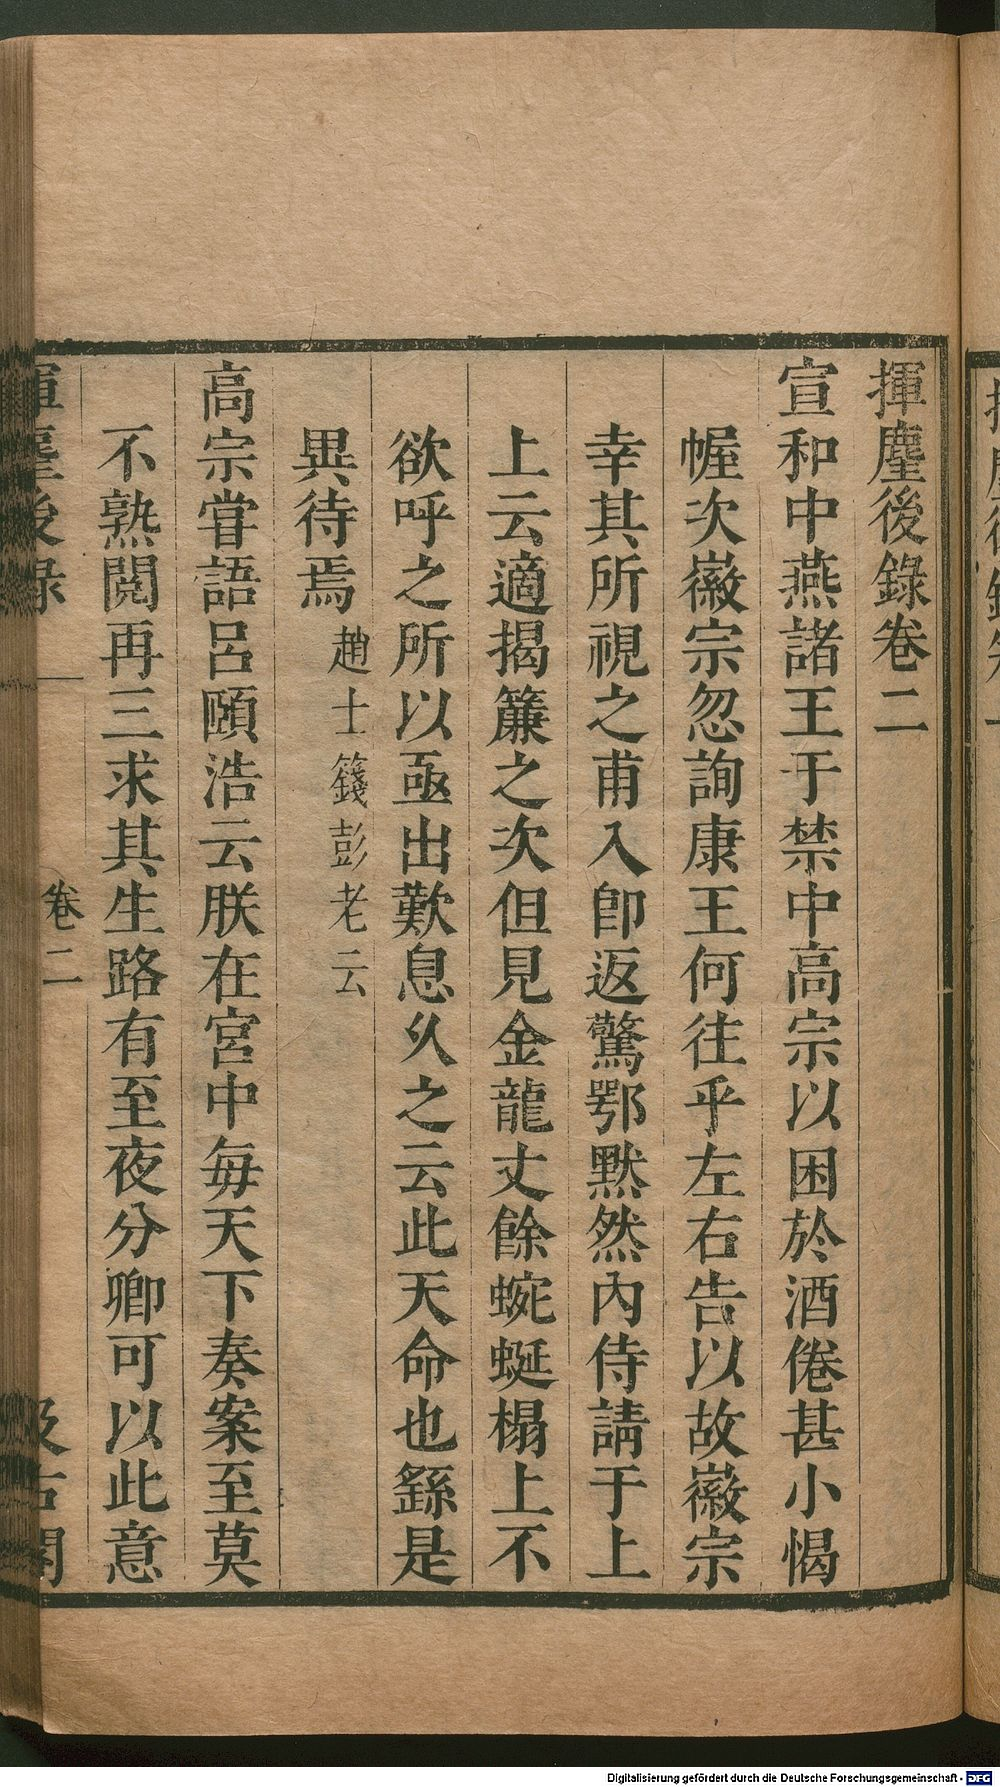 揮麈後錄卷二
宣和中燕諸王于禁中高宗以困於酒倦甚小愒
幄次徽宗忽詢康王何往乎左右告以故徽宗
幸其所視之甫入卽返驚鄂默然內侍請于上
上云適揭簾之次但見金龍丈餘蜿蜒榻上不
欲呼之所以亟出歎息久之云此天命也繇是
異待焉趙士籛彭老云
高宗嘗語呂頤浩云朕在宮中每天下奏案至莫
不熟閱再三求其生路有至夜分卿可以此意
揮麈後錄
卷二
汲古閣
Digitalisierung gefördert durch die Deutsche Forschungsgemeinschaft - DFG